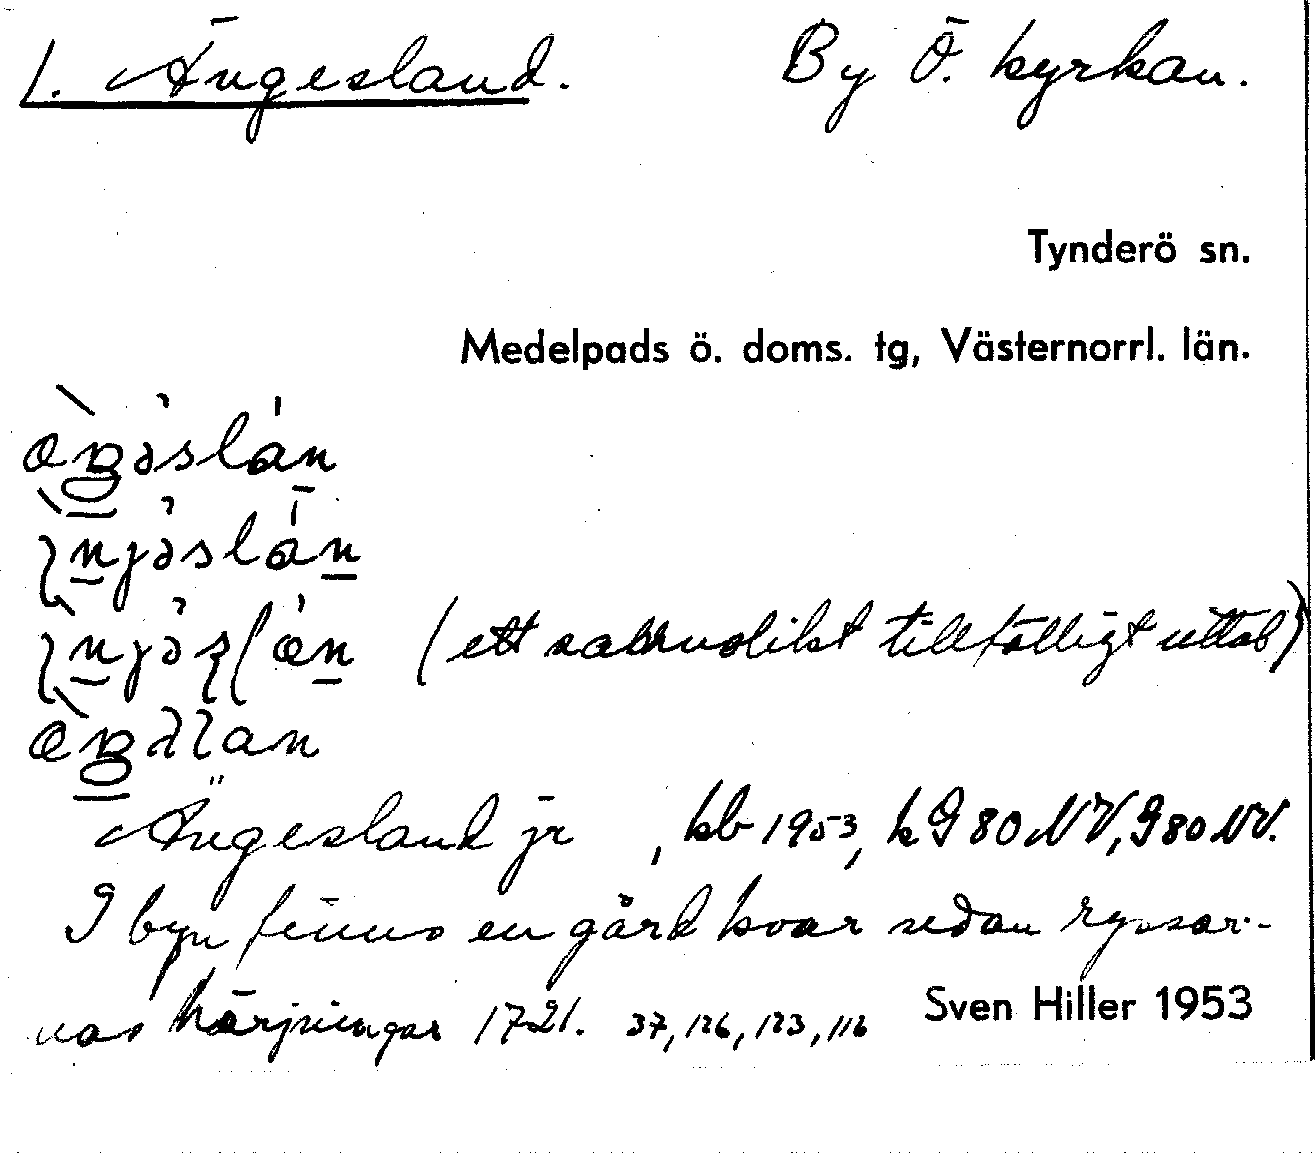 1. Ängesland. By Ö. kyrkan.
Tynderö sn.
Medelpads ö. doms. tg, Västernorrl. län.
(ett sannolikt tillfälligt uttal)
Ängesland jr, kb 1953, k G 80 NV, G 80 NV.
I byn finns en gård kvar sedan ryssar-
nas härjningar 1721. 37, 126, 123, 116
Sven Hiller 1953